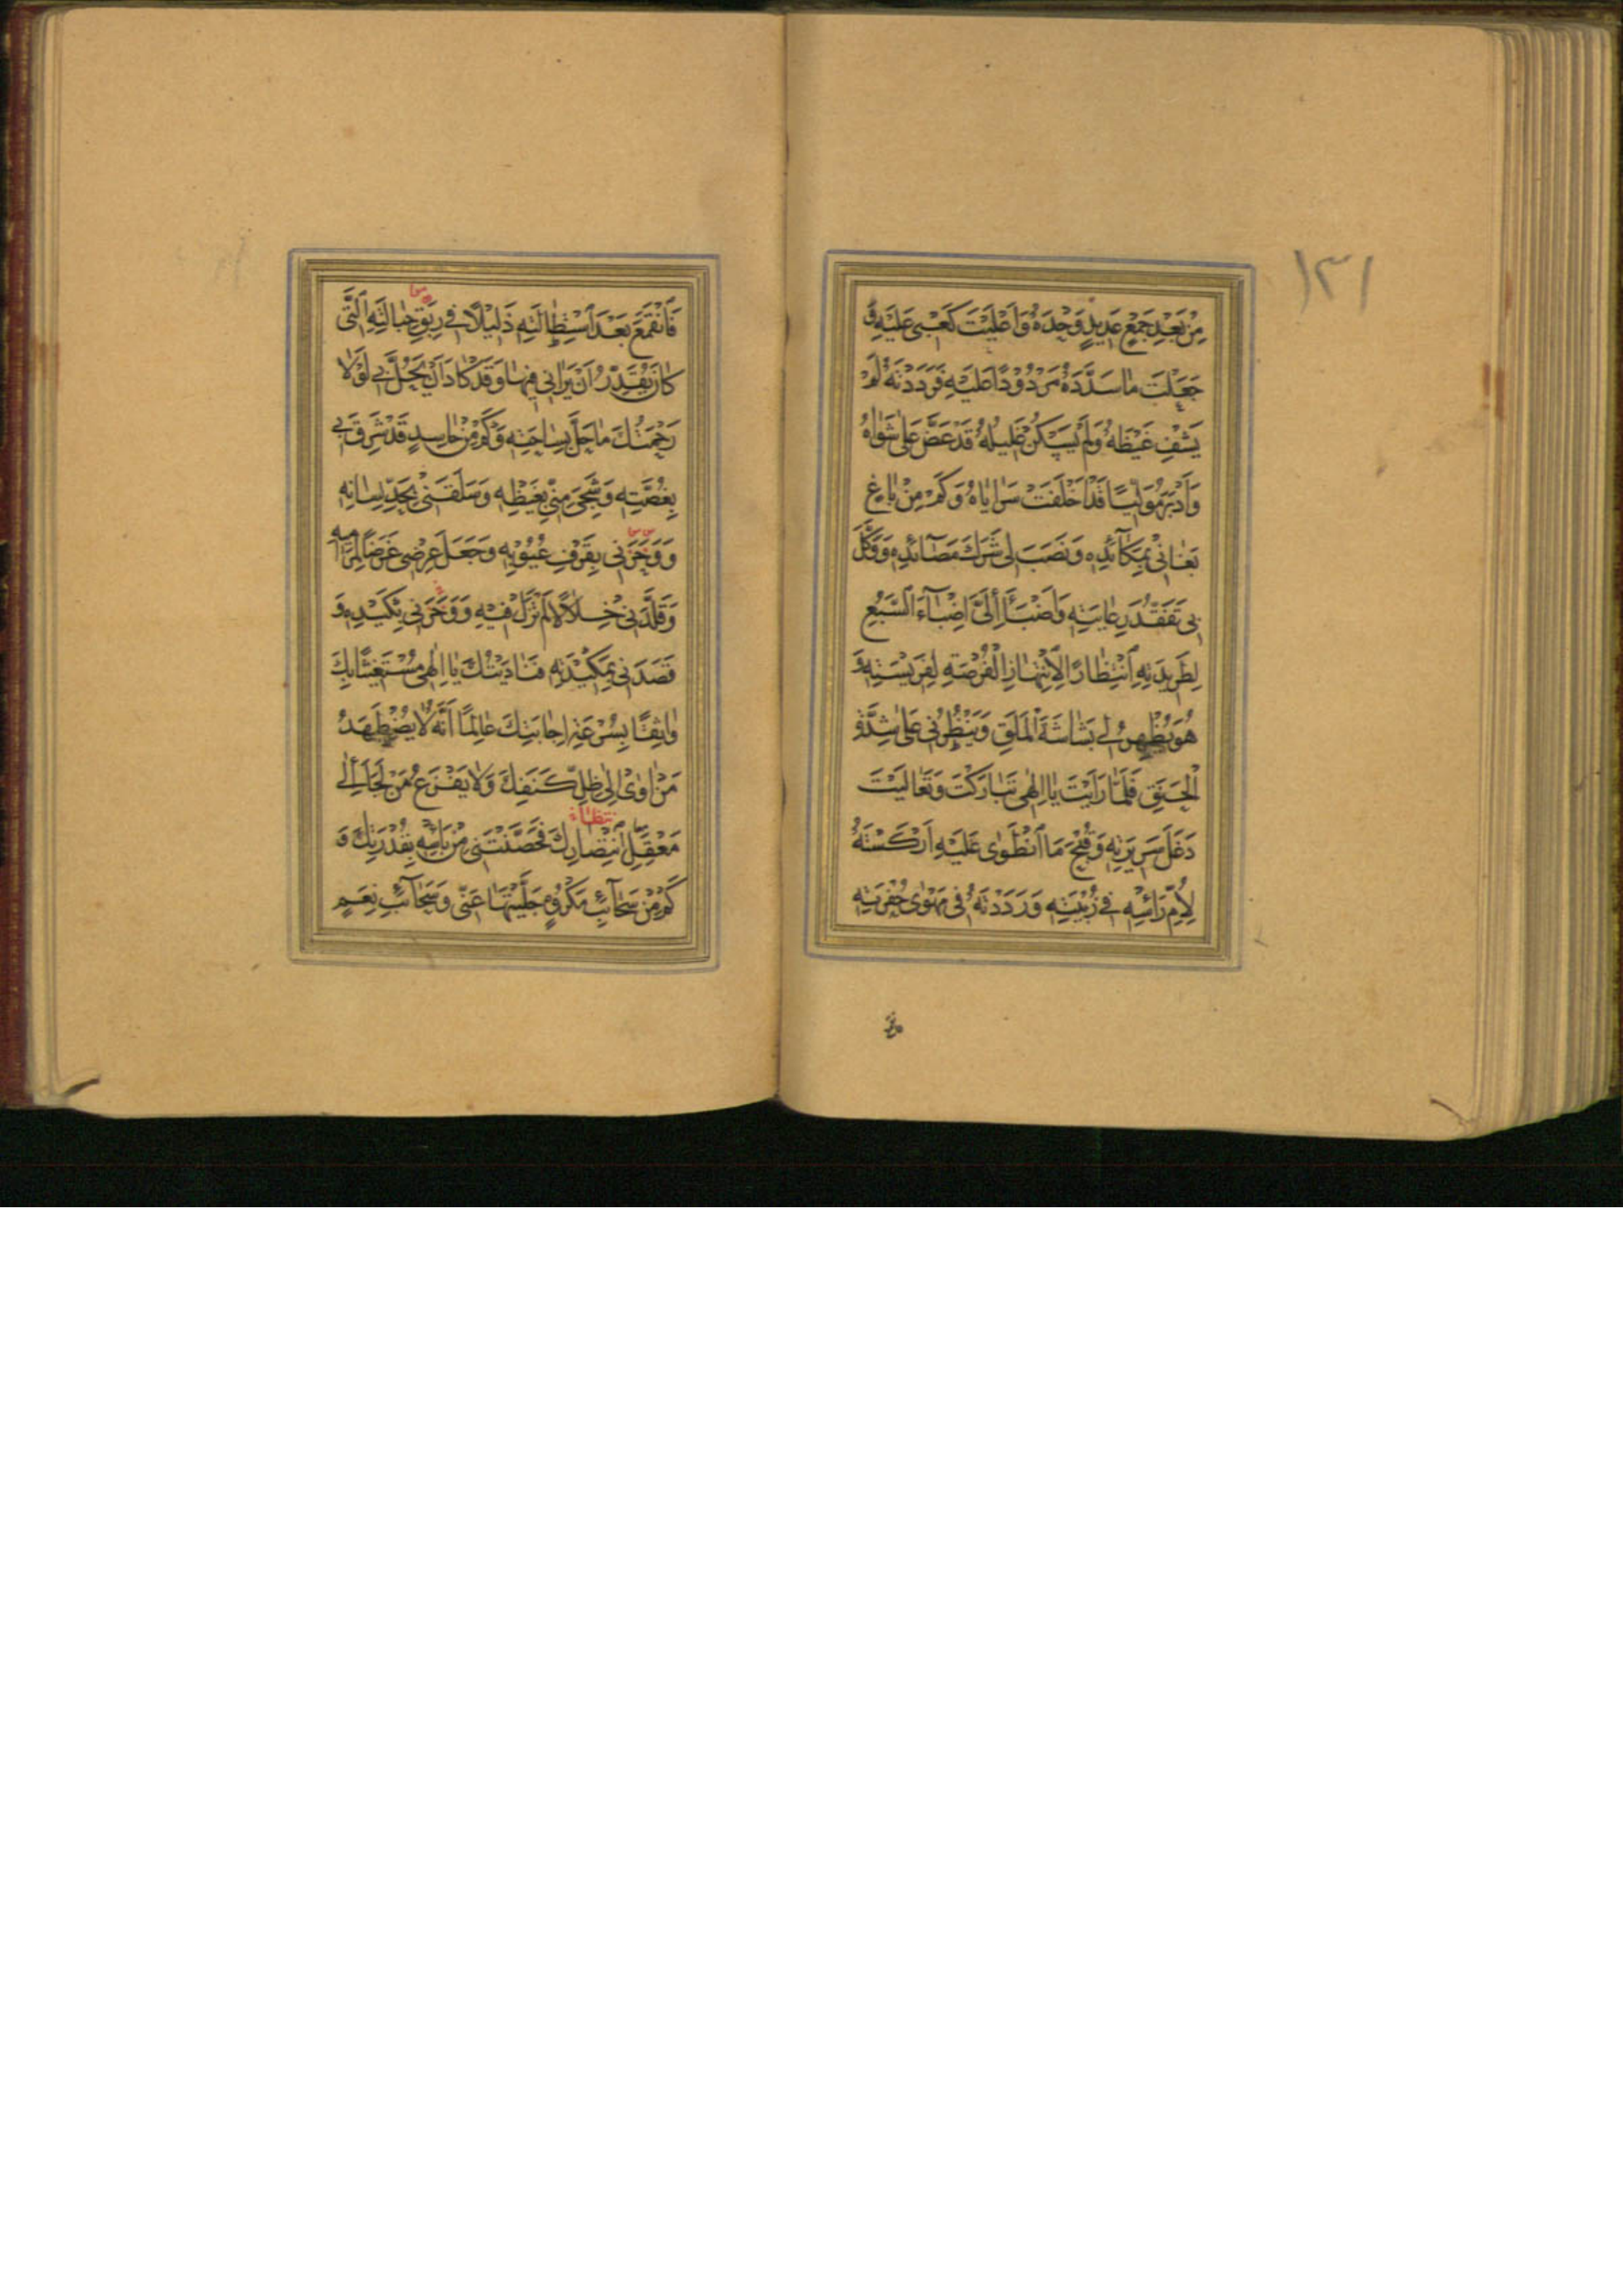 ١٣١
مِنْ بَعْدِ جَمْعٍ عَدِيدٍ وَحْدَهُ وَاَعْلَيْتَ كَعْبِى عَلَيْهِ وَ
جَعَلْتَ مٰا سَدَّدَهُ مَرْدُوْدًا عَلَيْهِ فَرَدَدْتَهُ لَمْ
يَشْفِ غَيْظَهُ وَلَمْ يَسْكُنْ غَلِيلُهُ قَدْ عَضَّ عَلٰى شَوٰاهُ
وَاَدْبَرَ مُوَلِّيًا قَدْ اَخْلَفَتْ سَرٰايٰاهُ وَكَمْ مِنْ بٰاغٍ
بَغٰانِىْ بِمَكٰآئِدِهِ وَنَصَبَ لِى شَرَكَ مَصٰآئِدِهِ وَوَكَّلَ
بِى تَفَقُّدَ رِعٰايَتِهِ وَاَضْبَأَ اِلَىَّ اِضْبٰآءَ السَّبُعِ
لِطَرِيدَتِهِ اِنْتِظٰارًا لِانْتِهٰازِ الْفُرْصَةِ لِفَرِيْسَتِهِ وَ
هُوَ يُظْهِرُ لِى بَشٰاشَةَ الْمَلَقِ وَيَنْظُرُنِى عَلٰى شِدَّةِ
الْحَنَقِ فَلَمّٰا رَاَيْتَ يٰا اِلٰهِى تَبٰارَكْتَ وَتَعٰالَيْتَ
دَغَلَ سَرِيرَتِهِ وَقُبْحَ مَا انْطَوٰى عَلَيْهِ اَرْكَسْتَهُ
لِاُمِّ رَأْسِهِ فِى زُبْيَتِهِ وَرَدَدْتَهُ فِى مَهْوٰى حُفْرَتِهِ
فَانْقَمَعَ بَعْدَ اسْتِطٰالَتِهِ ذَلِيْلًا فِى رِبَقِ حِبٰالَتِهِ الَّتِى
كٰانَ يُقَدِّرُ اَنْ يَرٰانِى فِيهٰا وَقَدْ كٰادَ اَنْ يَحُلَّ بِى لَوْلٰا
رَحْمَتُكَ مٰا حَلَّ بِسٰاحَتِهِ وَكَمْ مِنْ حٰاسِدٍ قَدْ شَرِقَ بِى
بِغُصَّتِهِ وَشَجِىَ مِنِّى بِغَيْظِهِ وَسَلَقَنِىْ بِحَدِّ لِسٰانِهِ
وَوَحَرَنِى بِقَرْفِ عُيُوْبِهِ وَجَعَلَ عِرْضِى غَرَضًا لِمَرٰامِيهِ
وَقَلَّدَنِى خِلٰالًا لَمْ تَزَلْ فِيْهِ وَوَخَزَنِى بِكَيْدِهِ وَ
قَصَدَنِى بِمَكِيْدَتِهِ فَنٰادَيْتُكَ يٰا اِلٰهِى مُسْتَغِيثًا بِكَ
وٰاثِقًا بِسُرْعَةِ اِجٰابَتِكَ عٰالِمًا اَنَّهُ لٰا يُضْطَهَدُ
مَنْ اَوٰى اِلٰى ظِلِّ كَنَفِكَ وَلٰا يَفْزَعُ مَنْ لَجَأَ اِلٰى
مَعْقِلِ انْتِصٰارِكَ فَحَصَّنْتَنِى مِنْ بَأْسِهِ بِقُدْرَتِكَ وَ
كَمْ مِنْ سَحٰآئِبِ مَكْرُوْهٍ جَلَّيْتَهٰا عَنِّى وَسَحٰآئِبِ نِعَمٍ